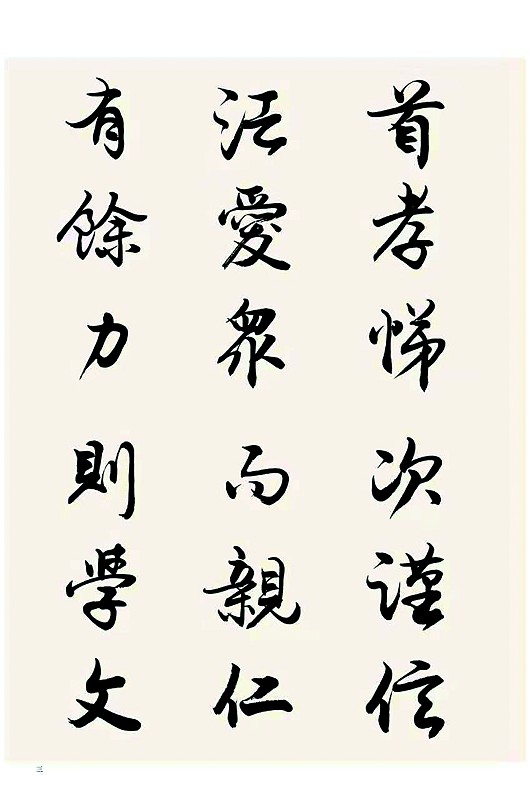 首孝悌次謹信
泛愛衆而親仁
有餘力則學文
三